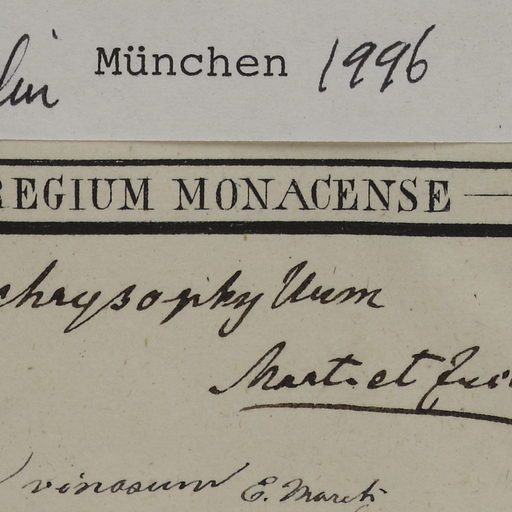 München 1996
REGIUM MONACENSE
chrysophyllum
Mart. et
vinosum E. March